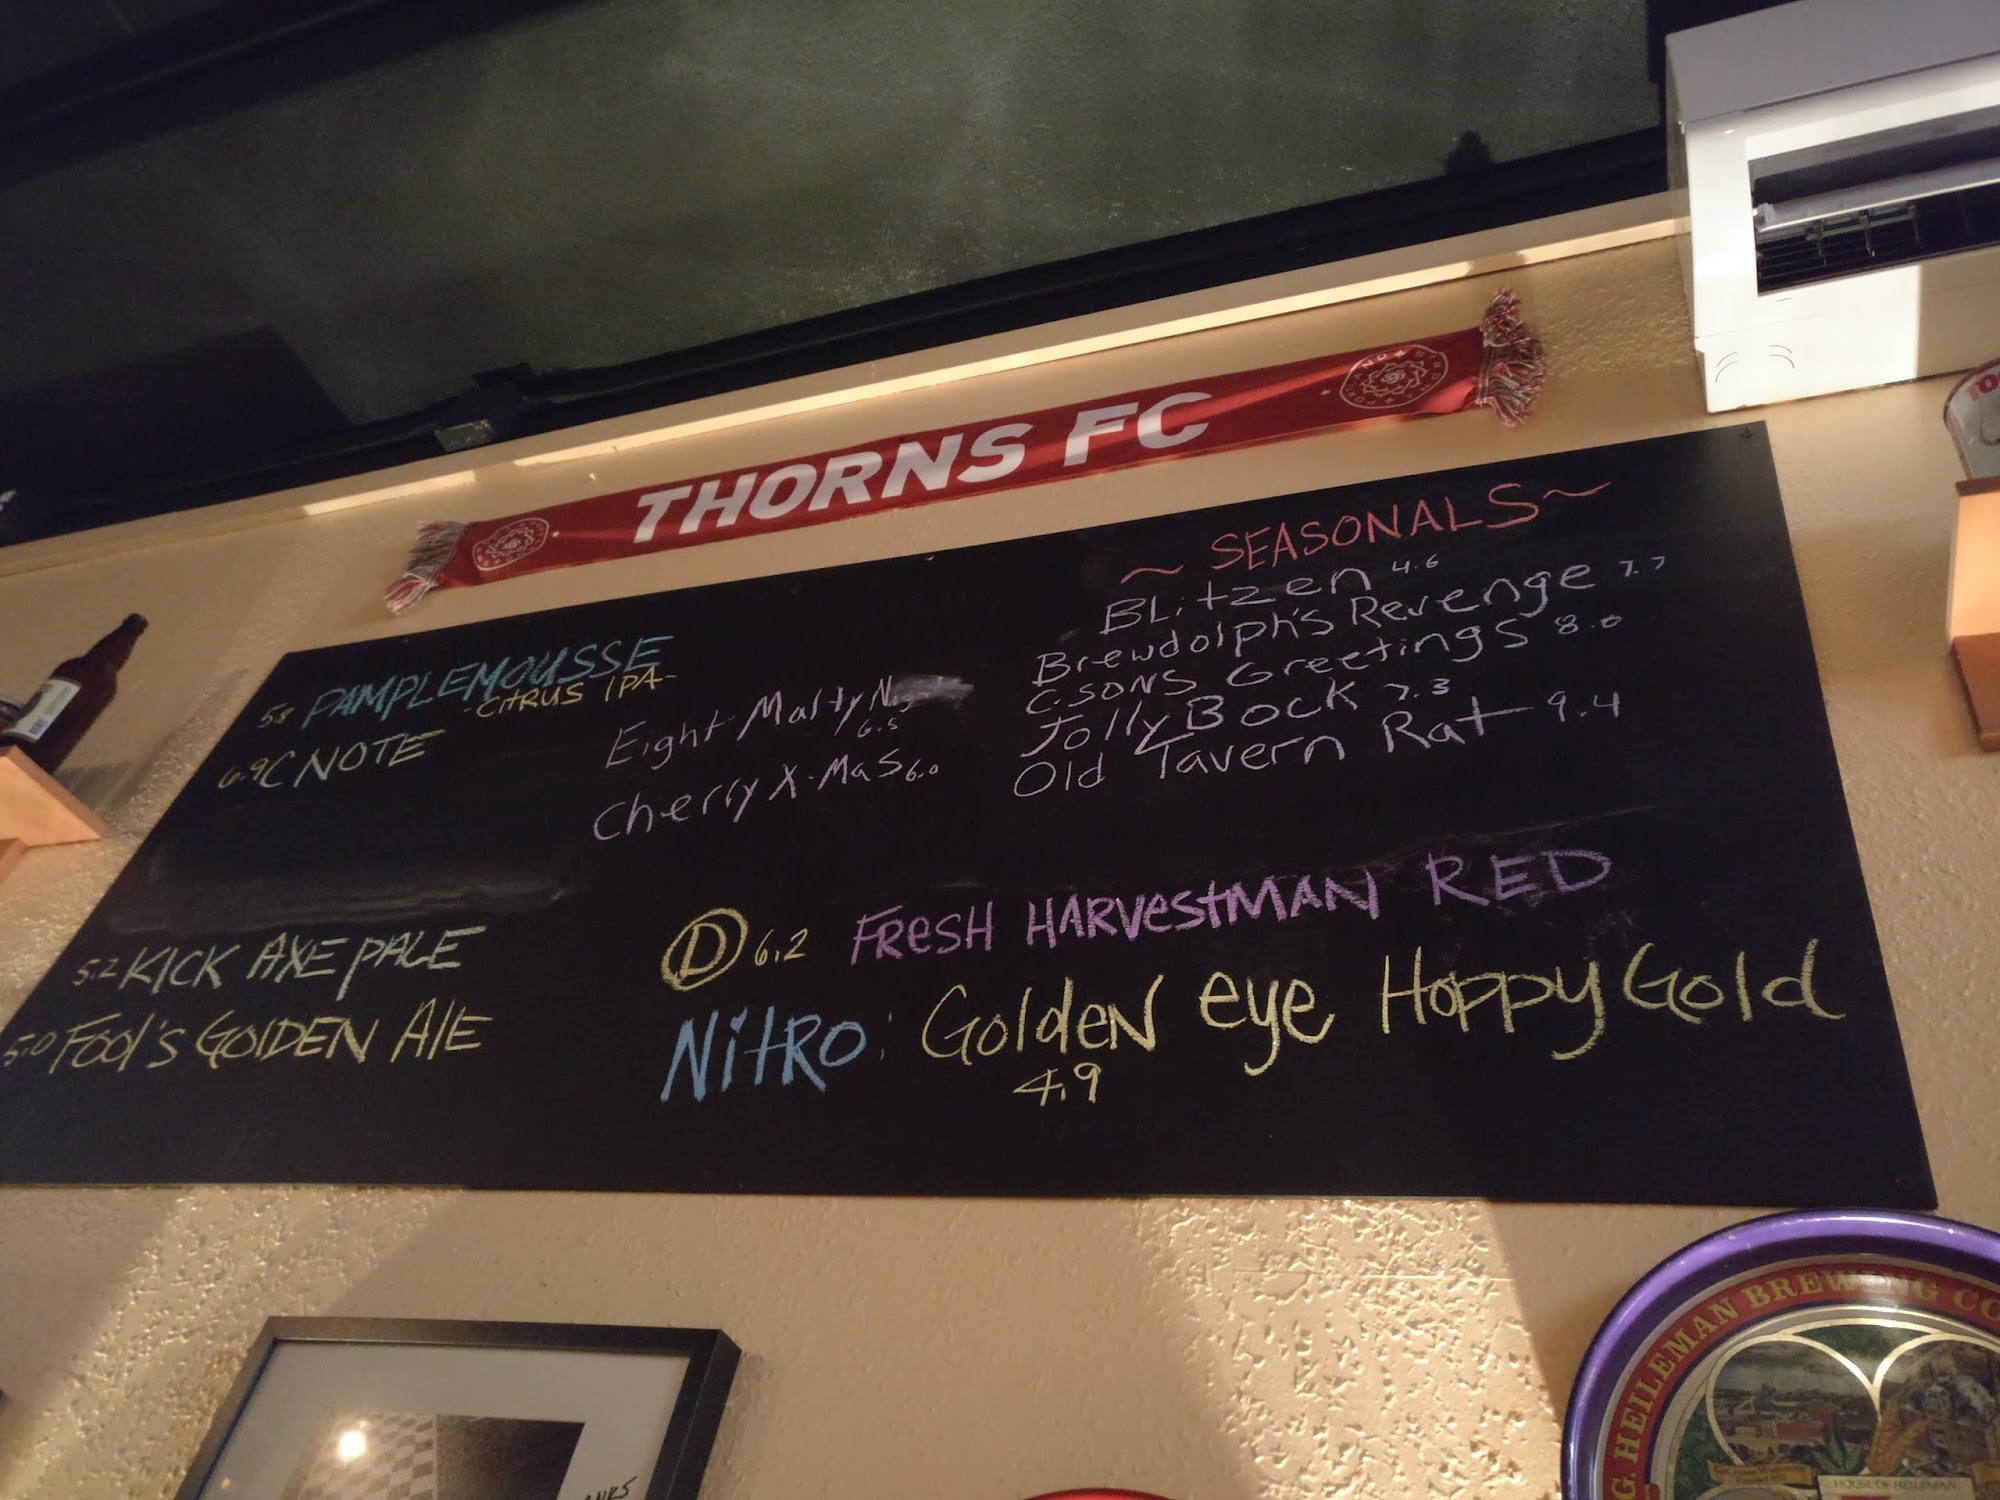 THORNS FC
~ SEASONALS ~
Blitzen 4.6
Brewdolph's Revenge 7.7
C.SONS Greetings 8.0
Jolly Bock 7.3
Old Tavern Rat 9.4
5.8 PAMPLEMOUSSE
-CITRUS IPA-
6.9 C NOTE
Eight Malty
6.5
Cherry X-Mas 6.0
5.2 KICK AXE PALE
5.0 Fool's GOLDEN AlE
D 6.2 FResH HARVestMAN RED
NitRO: GoldeN eye Hoppy Gold
4.9
G. HEILEMAN BREWING CO
HOUSE OF HEILEMAN